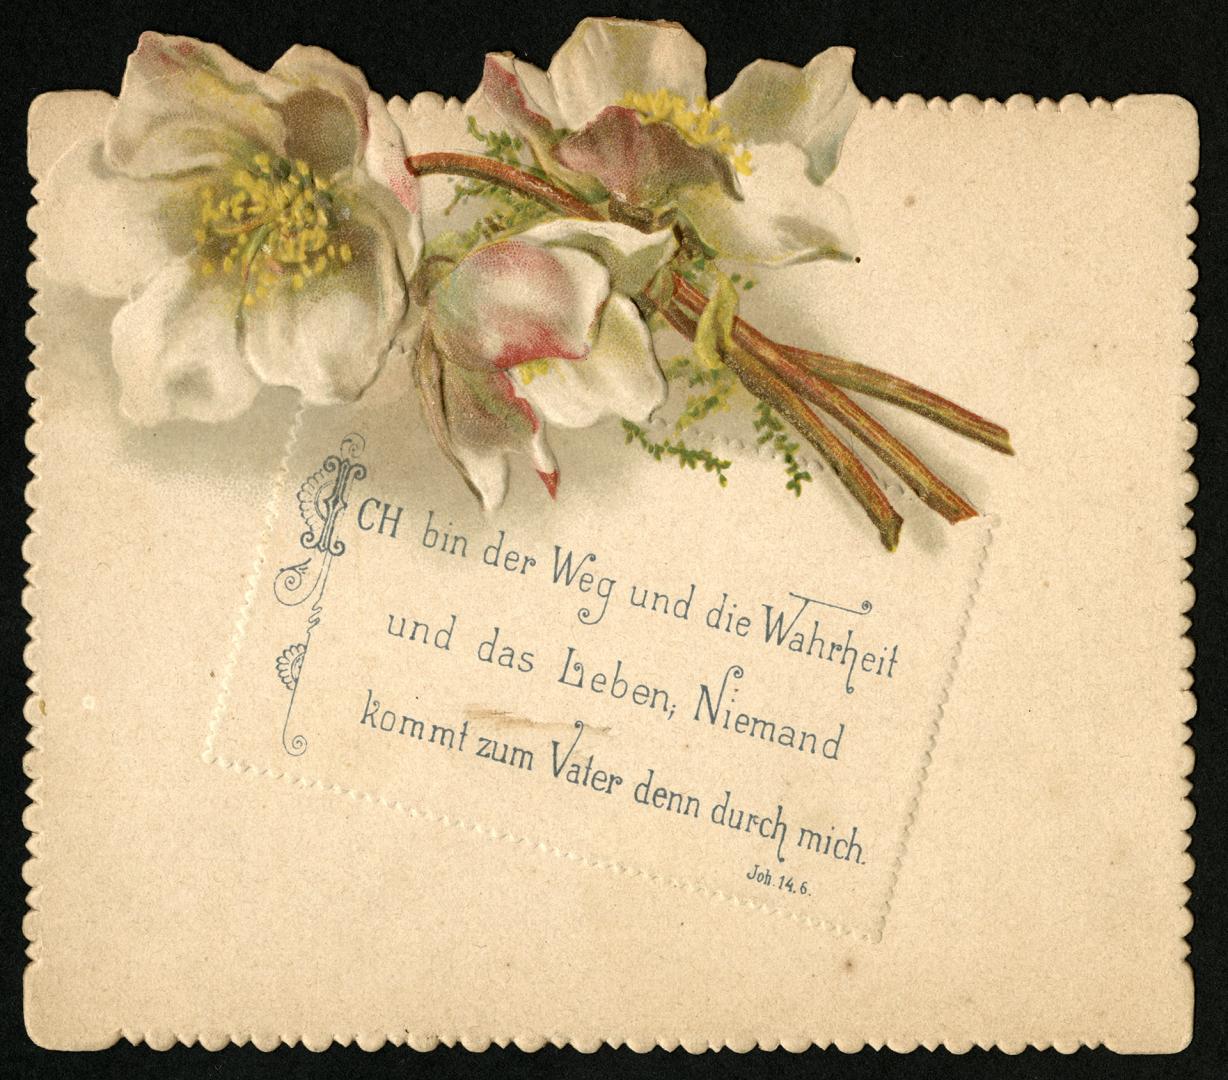 ICH bin der Weg und die Wahrheit
und das Leben; Niemand
kommt zum Vater denn durch mich.
Joh. 14. 6.